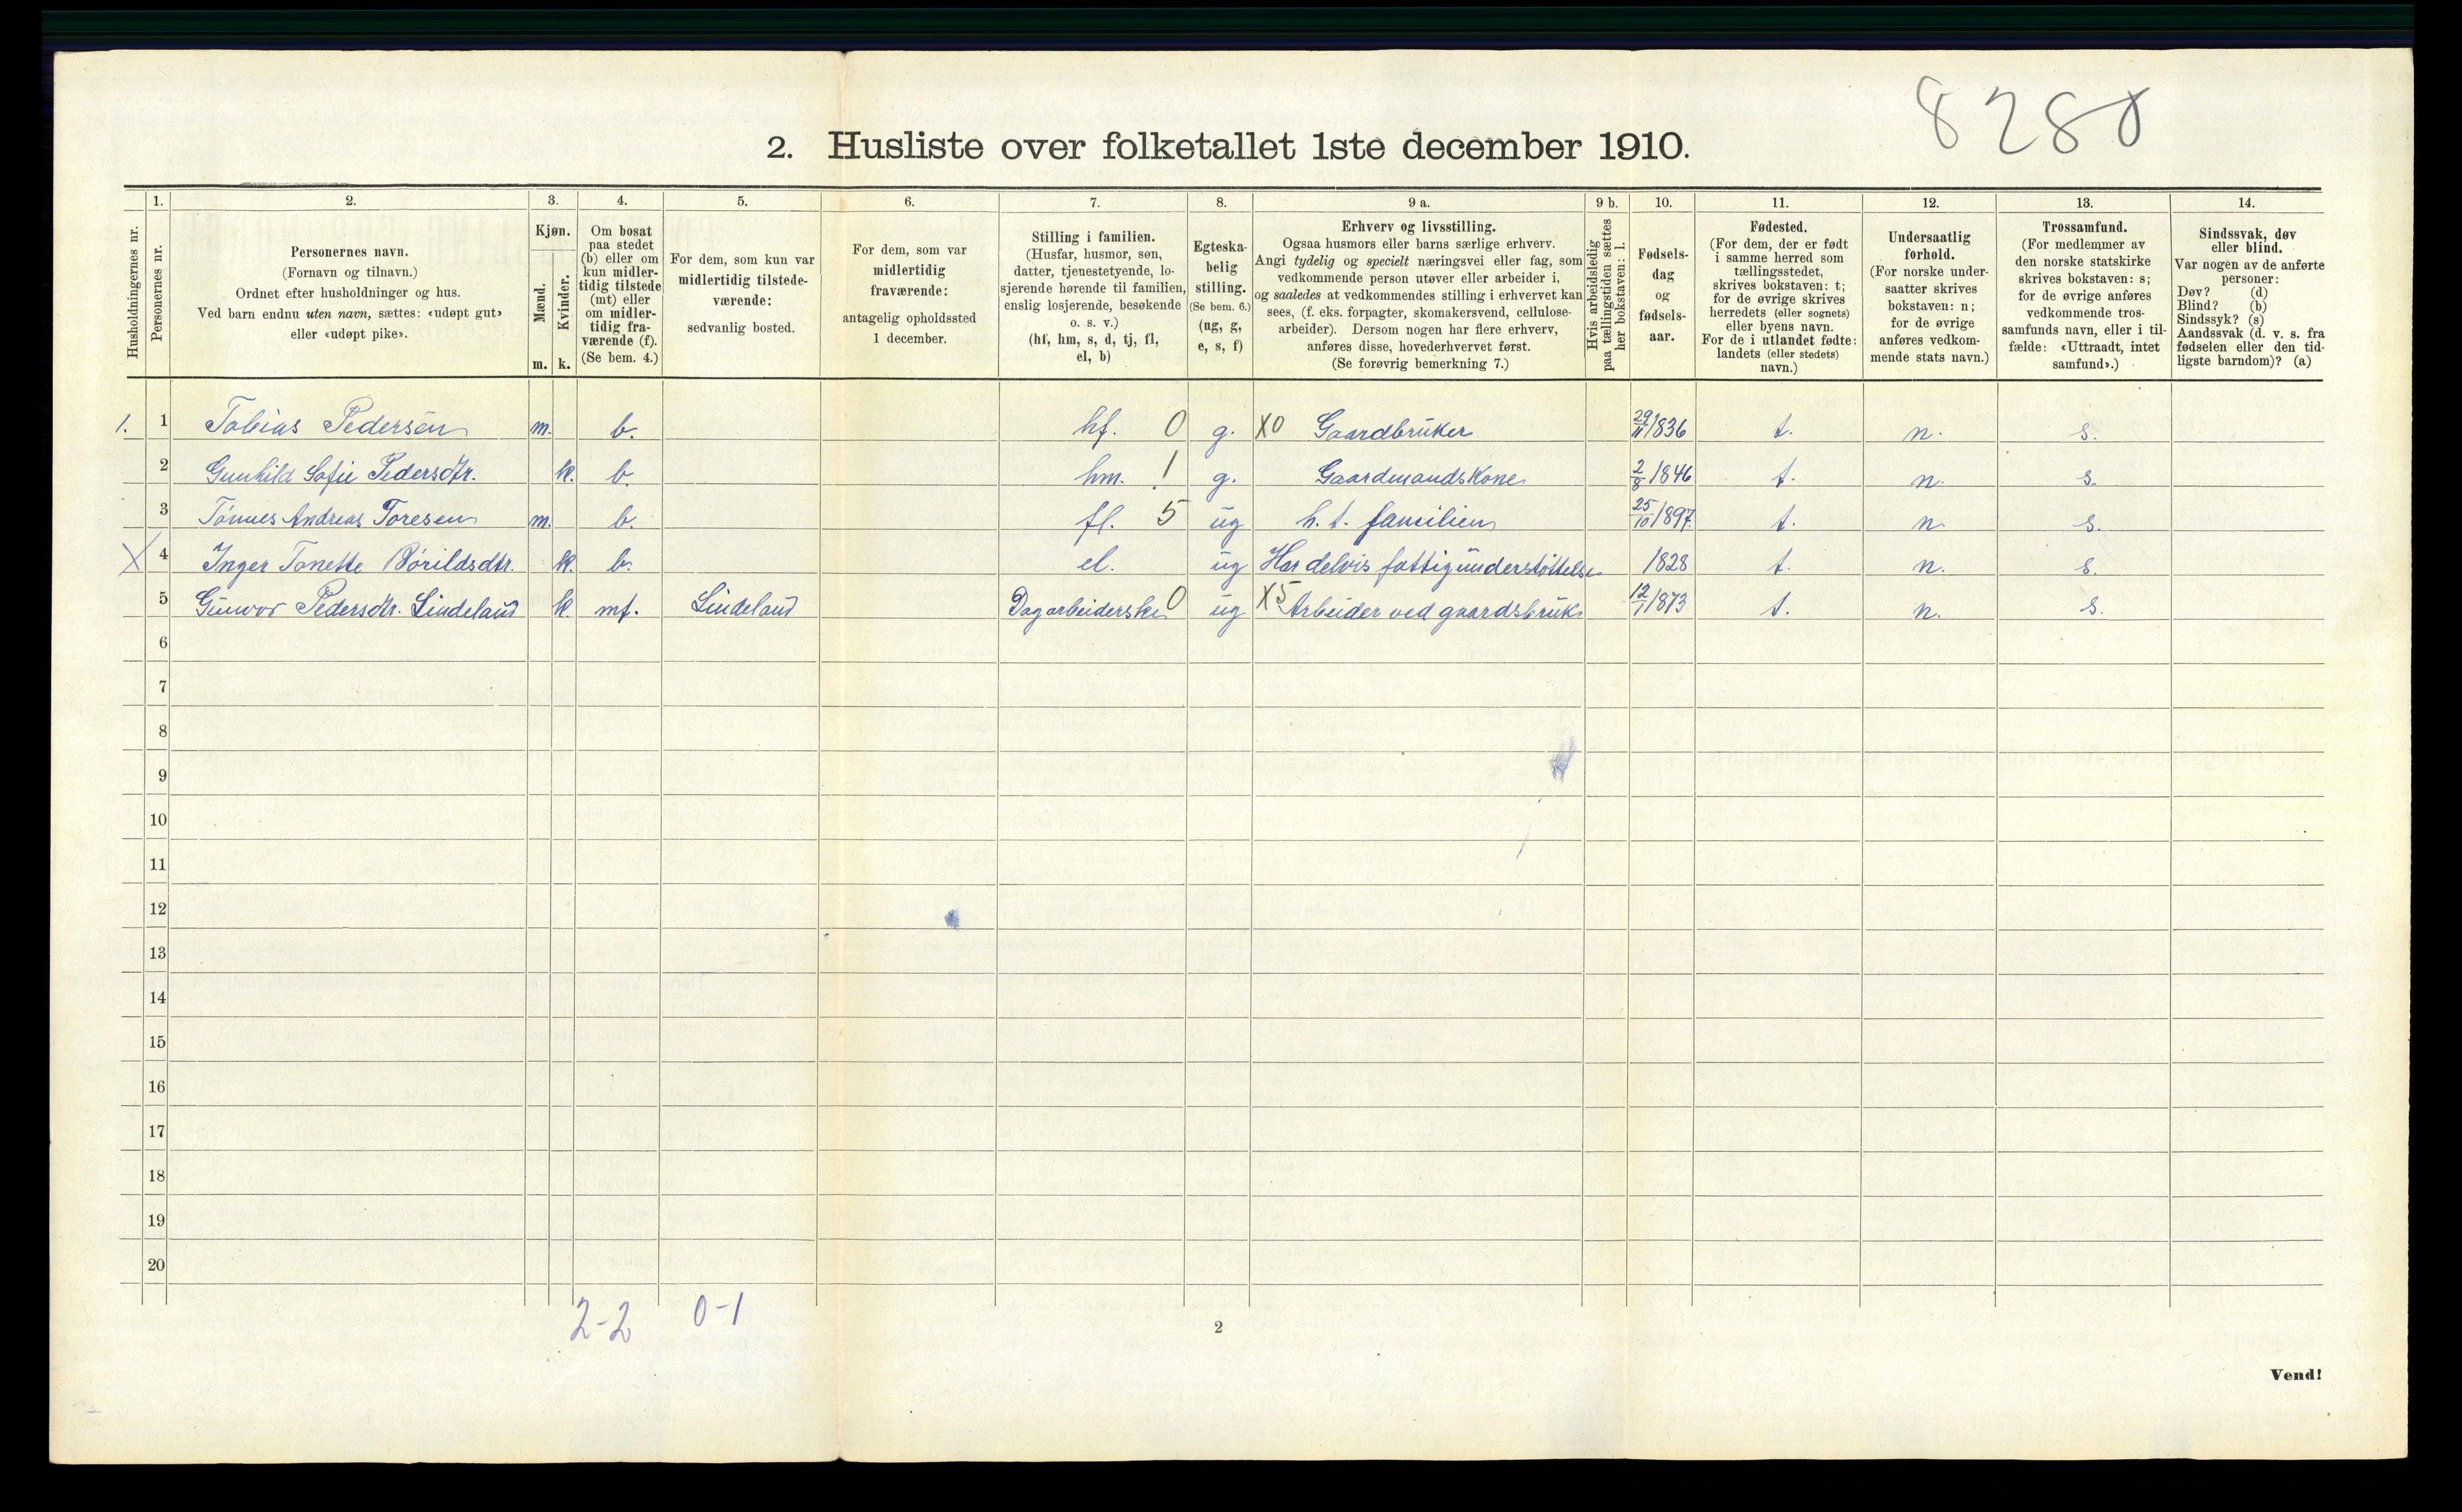 8280
2. Husliste over folketallet 1ste december 1910.
Husholdningernes nr.
1. Personernes nr.
2. Personernes navn.
(Fornavn og tilnavn.)
Ordnet efter husholdninger og hus.
Ved barn endnu uten navn, sættes: «udøpt gut»
eller «udøpt pike».
3. Kjøn.
Mænd. Kvinder.
m. k.
4. Om bosat
paa stedet
(b) eller om
kun midler-
tidig tilstede
(mt) eller
om midler-
tidig fra-
værende (f).
(Se bem. 4.)
5. For dem, som kun var
midlertidig tilstede-
værende:
sedvanlig bosted.
6. For dem, som var
midlertidig
fraværende:
antagelig opholdssted
1 december.
7. Stilling i familien.
(Husfar, husmor, søn,
datter, tjenestetyende, lo-
sjerende hørende til familien,
enslig losjerende, besøkende
o. s. v.)
(hf, hm, s, d, tj, fl,
el, b)
8. Egteska-
belig
stilling.
(Se bem. 6.)
(ug, g,
e, s, f)
9 a. Erhverv og livsstilling.
Ogsaa husmors eller barns særlige erhverv.
Angi tydelig og specielt næringsvei eller fag, som
vedkommende person utøver eller arbeider i,
og saaledes at vedkommendes stilling i erhvervet kan
sees, (f. eks. forpagter, skomakersvend, cellulose-
arbeider). Dersom nogen har flere erhverv,
anføres disse, hovederhvervet først.
(Se forøvrig bemerkning 7.)
9 b. Hvis arbeidsledig
paa tællingstiden sættes
her bokstaven: l.
10. Fødsels-
dag
og
fødsels-
aar.
11. Fødested.
(For dem, der er født
i samme herred som
tællingsstedet,
skrives bokstaven: t;
for de øvrige skrives
herredets (eller sognets)
eller byens navn.
For de i utlandet fødte:
landets (eller stedets)
navn.)
12. Undersaatlig
forhold.
(For norske under-
saatter skrives
bokstaven: n;
for de øvrige
anføres vedkom-
mende stats navn.)
13. Trossamfund.
(For medlemmer av
den norske statskirke
skrives bokstaven: s;
for de øvrige anføres
vedkommende tros-
samfunds navn, eller i til-
fælde: «Uttraadt, intet
samfund».)
14. Sindssvak, døv
eller blind.
Var nogen av de anførte
personer:
Døv? (d)
Blind? (b)
Sindssyk? (s)
Aandssvak (d. v. s. fra
fødselen eller den tid-
ligste barndom)? (a)
1. 1 Tobias Pedersen m. b. hf. 0 g. X0 Gaardbruker 29/11 1836 t. n. s.
2 Gunhild Sofie Pedersdtr. k. b. hm. 1 g. Gaardmandskone 2/8 1846 t. n. s.
3 Tønnes Andreas Toresen m. b. fl. 5 ug h. t. familien 25/10 1897 t. n. s.
X 4 Inger Tonette Bórildsdtr. k. b. el. ug Har delvis fattigunderstøttelse 1828 t. n. s.
5 Gunvor Pedersdtr. Lindeland k. mt. Lindeland Dagarbeiderske 0 ug X5 Arbeider ved gaardsbruk 12/1 1873 t. n. s.
6
7
8
9
10
11
12
13
14
15
16
17
18
19
20
2-2 0-1
2
Vend!